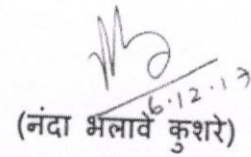 6.12.13
(नंदा भलावे कुशरे)